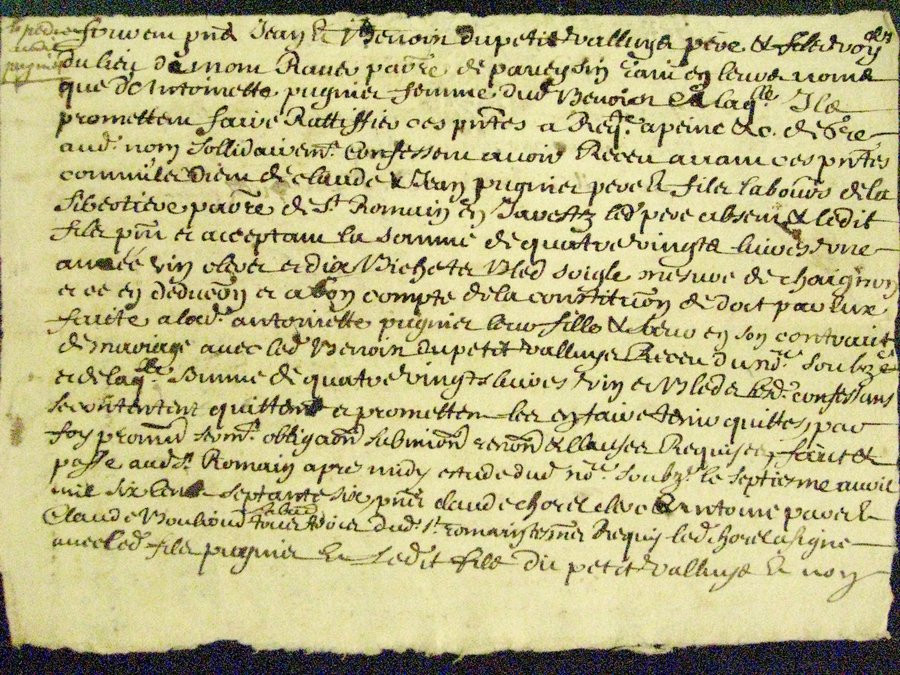 furent pnts Jean et Benoit du petit valluys pere et fils
du lieu de mont Raver parr.e de panessin tant en leurs noms
que d'Antoinette pugnier femme dud. Benoit a laq.lle Ils
promettent faire Rattiffier ces pntes a Req. a peine &c. desd.
aud. nom sollidairem.t Confessent avoir Receu avant ces pntes
de claude & Jean pugnier pere et fils labours de la
parr.e de St Romain en Javestz led. pere absent & ledit
fils pnt et acceptant la somme de quatre vingts livres une
annee vin clever et dix Bichets Bled soigle mesure de
et ce en deduc.on et a bon compte de la constitu.on de dot par eux
faite a lad. antoinette pugnier leur fille & seur en son contrait
de mariage avec led. Benoit du petit valluys Receu du n.re soubz.e
et de laq.lle somme de quatre vingts livres vin et Bled lesd. confessans
se contentent quittent et promettent les en faire tenir quittes par
foy promis serm.t obliga.on submi.on renon.on & clauses Requises fait et
passe aud. St. Romain apres midy estude dud. no.re soubz. le septieme avril
mil six cent septante six pnts claude chorel clerc & antoine
Claude dud. St romain tesmoins Requis led. chorel a signe
avec led. fils pugnier et Ledit fils du petit valluys et non